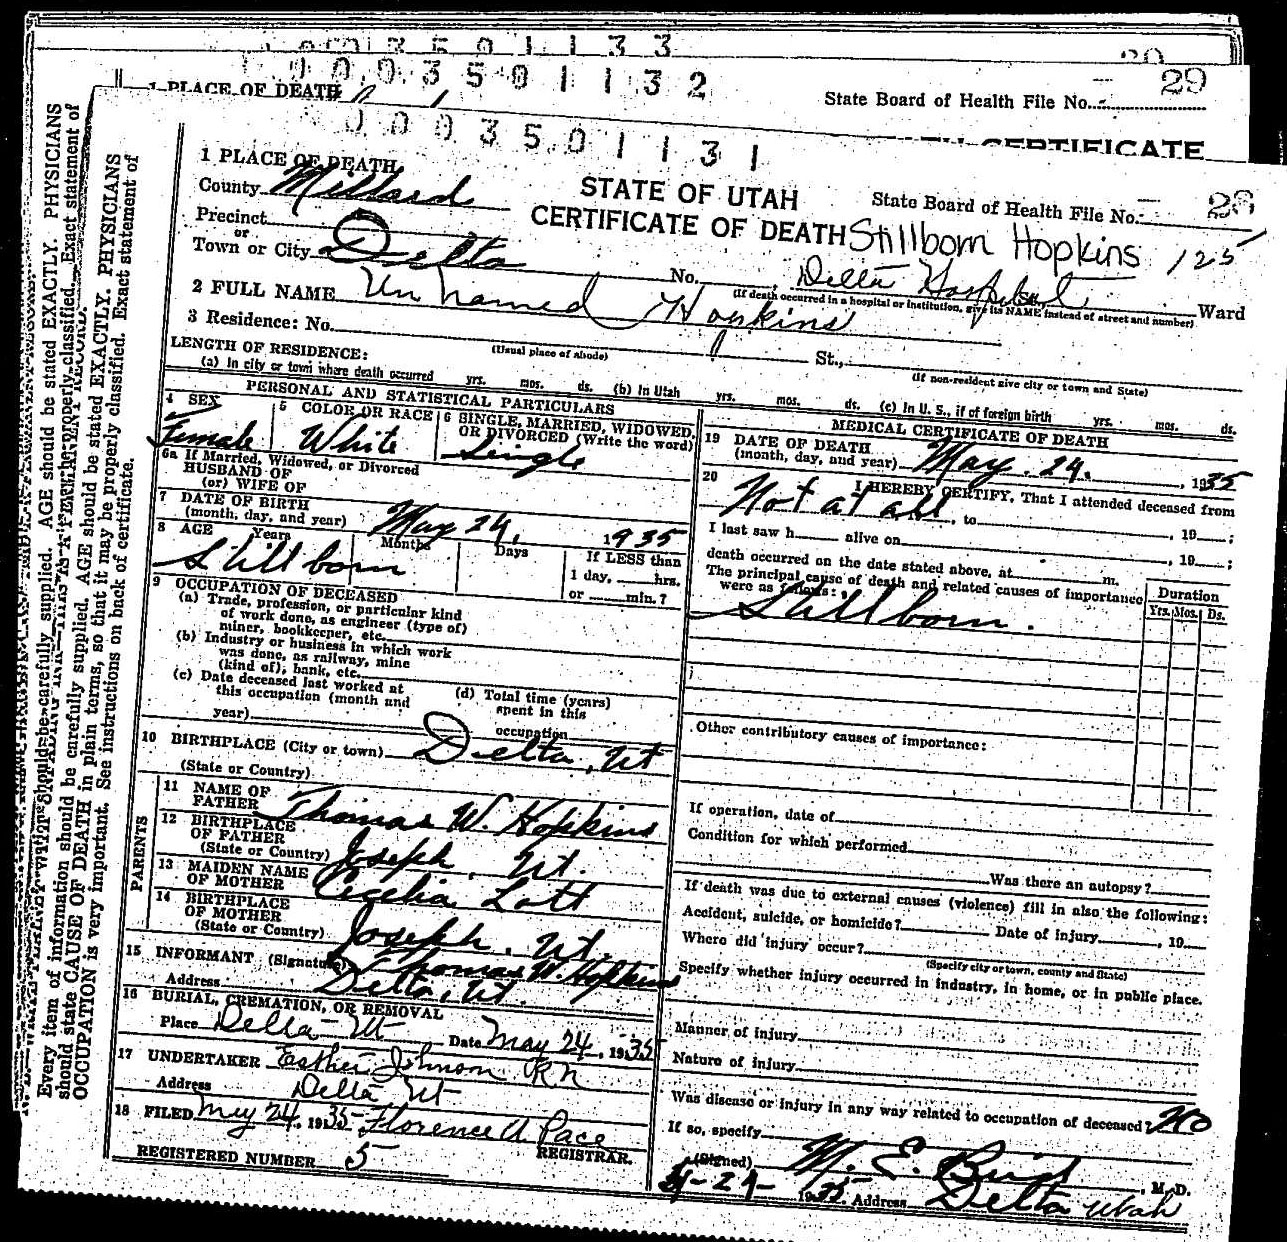 0003501133
29
0003501132
29
1 PLACE OF DEATH
State Board of Health File No.
CERTIFICATE
0003501131
1 PLACE OF DEATH
County Millard
STATE OF UTAH
State Board of Health File No. 28
CERTIFICATE OF DEATH Stillborn Hopkins 125
Precinct
or
Town or City Delta
No. Delta Hospital St., Ward
(If death occurred in a hospital or institution, give its NAME instead of street and number)
2 FULL NAME Un named Hopkins
3 Residence: No. St.,
(Usual place of abode) (If non-resident give city or town and State)
LENGTH OF RESIDENCE:
(a) In city or town where death occurred yrs. mos. ds. (b) In Utah yrs. mos. ds. (c) In U. S., if of foreign birth yrs. mos. ds.
PERSONAL AND STATISTICAL PARTICULARS
4 SEX Female
5 COLOR OR RACE White
6 SINGLE, MARRIED, WIDOWED, OR DIVORCED (Write the word) Single
6a If Married, Widowed, or Divorced
HUSBAND OF
(or) WIFE OF
7 DATE OF BIRTH
(month, day, and year) May 24, 1935
8 AGE Years Months Days If LESS than
Stillborn 1 day, hrs.
or min.?
9 OCCUPATION OF DECEASED
(a) Trade, profession, or particular kind
of work done, as engineer (type of)
miner, bookkeeper, etc.
(b) Industry or business in which work
was done, as railway, mine
(kind of), bank, etc.
(c) Date deceased last worked at
this occupation (month and
year)
(d) Total time (years)
spent in this
occupation
10 BIRTHPLACE (City or town) Delta, Ut
(State or Country)
PARENTS
11 NAME OF
FATHER Thomas W. Hopkins
12 BIRTHPLACE
OF FATHER
(State or Country) Joseph, Ut.
13 MAIDEN NAME
OF MOTHER Cecelia Lott
14 BIRTHPLACE
OF MOTHER
(State or Country) Joseph, Ut.
15 INFORMANT (Signature) Thomas W. Hopkins
Address Delta, Ut.
16 BURIAL, CREMATION, OR REMOVAL
Place Delta Ut Date May 24, 1935
17 UNDERTAKER Esther Johnson RN
Address Delta Ut
18 FILED May 24, 1935 Florence A Pace
REGISTRAR.
REGISTERED NUMBER 5
MEDICAL CERTIFICATE OF DEATH
19 DATE OF DEATH
(month, day, and year) May. 24. , 1935
20 I HEREBY CERTIFY, That I attended deceased from
Not at all , to , 19 ;
I last saw h alive on , 19 ;
death occurred on the date stated above, at m.
The principal cause of death and related causes of importance
were as follows: Duration
Yrs. Mos. Ds.
Stillborn.
Other contributory causes of importance:
If operation, date of
Condition for which performed
Was there an autopsy?
If death was due to external causes (violence) fill in also the following:
Accident, suicide, or homicide? Date of injury , 19
Where did injury occur?
(Specify city or town, county and State)
Specify whether injury occurred in industry, in home, or in public place.
Manner of injury
Nature of injury
Was disease or injury in any way related to occupation of deceased? No
If so, specify
(Signed) M. E. Bird , M. D.
5-24- 1935 Address Delta Utah
Every item of information should be carefully supplied. AGE should be stated EXACTLY. PHYSICIANS
should state CAUSE OF DEATH in plain terms, so that it may be properly classified. Exact statement of
OCCUPATION is very important. See instructions on back of certificate.